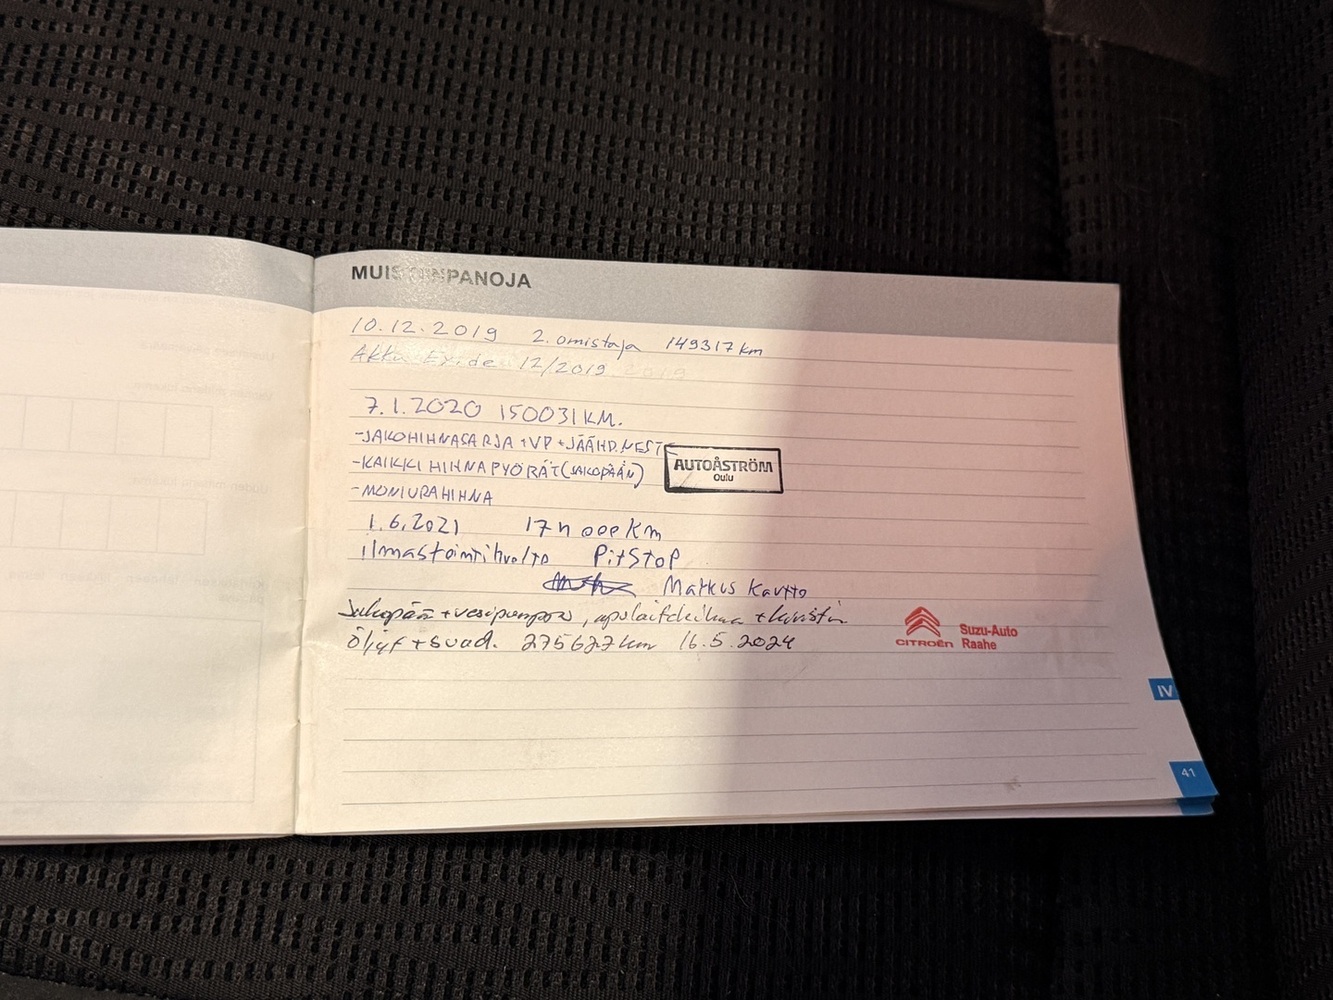 MUISTIINPANOJA
10.12.2019 2. omistaja 149317 km
Akku Exide 12/2019 2019
7.1.2020 150031 KM.
-JAKOHIHNASARJA + VP + JÄÄHD.NEST
-KAIKKI HIHNAPYÖRÄT (JAKOPÄÄN)
-MONIURAHIHNA
AUTOÅSTRÖM
Oulu
1.6.2021 17 000 km
ilmastointihuolto PitStop
Markus Kautto
Jakopää + vesipumppu, apulaitehihna + kiristin
Öljyt + suod. 275627 km 16.5.2024
CITROËN
Suzu-Auto
Raahe
IV
41